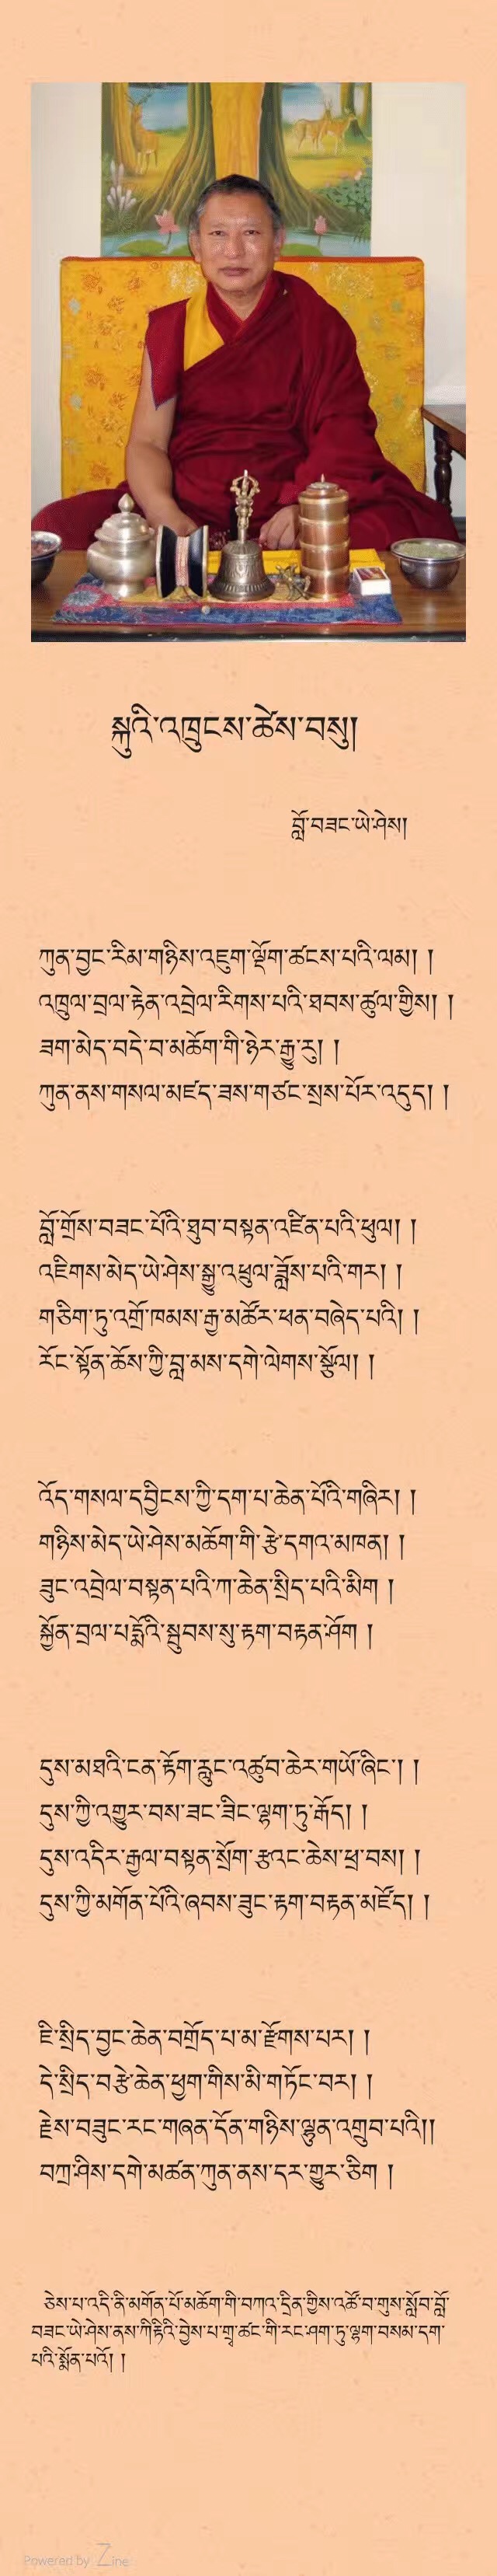 སྐུའི་འཁྲུངས་ཚེས་བསུ།
བློ་བཟང་ཡེ་ཤེས།
ཀུན་བྱང་རིམ་གཉིས་འཇུག་ལྡོག་ཚངས་པའི་ལམ། །
འཁྲུལ་བྲལ་རྟེན་འབྲེལ་རིགས་པའི་ཐབས་ཚུལ་གྱིས། །
ཟག་མེད་བདེ་བ་མཆོག་གི་ཉེར་རྒྱུ་རུ། །
ཀུན་ནས་གསལ་མཛད་ཟས་གཙང་སྲས་པོར་འདུད། །
བློ་གྲོས་བཟང་པོའི་ཐུབ་བསྟན་འཛིན་པའི་ཕུལ། །
འཇིགས་མེད་ཡེ་ཤེས་སྒྱུ་འཕྲུལ་ཟློས་པའི་གར། །
གཅིག་ཏུ་འགྲོ་ཁམས་རྒྱ་མཚོར་ཕན་བཞེད་པའི། །
རོང་སྟོན་ཆོས་ཀྱི་བླ་མས་དགེ་ལེགས་སྩོལ། །
འོད་གསལ་དབྱིངས་ཀྱི་དག་པ་ཆེན་པོའི་གཞིར། །
གཉིས་མེད་ཡེ་ཤེས་མཆོག་གི་རྩེ་དགའ་མཁན། །
ཟུང་འབྲེལ་བསྟན་པའི་ཀ་ཆེན་སྲིད་པའི་མིག །
སྐྱོན་བྲལ་པདྨོའི་སྦུབས་སུ་རྟག་བརྟན་ཤོག །
དུས་མཐའི་ངན་རྟོག་རླུང་འཚུབ་ཆེར་གཡོ་ཞིང་། །
དུས་ཀྱི་འགྱུར་བས་ཟང་ཟིང་ལྷག་ཏུ་རྒོད། །
དུས་འདིར་རྒྱལ་བསྟན་སྲོག་རྩའང་ཆེས་ཕྲ་བས། །
དུས་ཀྱི་མགོན་པོའི་ཞབས་ཟུང་རྟག་བརྟན་མཛོད། །
ཇི་སྲིད་བྱང་ཆེན་བགྲོད་པ་མ་རྫོགས་པར། །
དེ་སྲིད་བརྩེ་ཆེན་ཕྱག་གིས་མི་གཏོང་བར། །
རྗེས་བཟུང་རང་གཞན་དོན་གཉིས་ལྷུན་འགྲུབ་པའི།།
བཀྲ་ཤིས་དགེ་མཚན་ཀུན་ནས་དར་གྱུར་ཅིག །
ཅེས་པ་འདི་ནི་མགོན་པོ་མཆོག་གི་བཀའ་དྲིན་གྱིས་འཚོ་བ་གུས་སློབ་བློ་
བཟང་ཡེ་ཤེས་ནས་ཀིརྟིའི་བྱེས་པ་གྲྭ་ཚང་གི་རང་ཤག་ཏུ་ལྷག་བསམ་དག་
པའི་སྨོན་པའོ། །
Powered by Zine